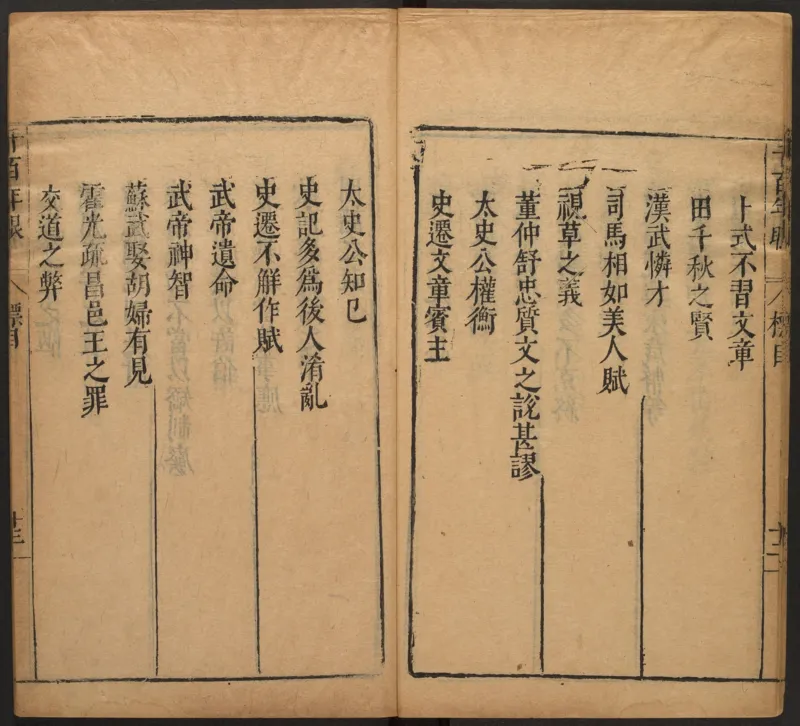 卜式不習文章
田千秋之賢
漢武憐才
司馬相如美人賦
視草之義
董仲舒忠質文之說甚謬
太史公權衡
史遷文章賓主
標目
太史公知己
史記多爲後人淆亂
史遷不解作賦
武帝遺命
武帝神智
蘇武娶胡婦有見
霍光疏昌邑王之罪
交道之弊
百年眼
標目
十三